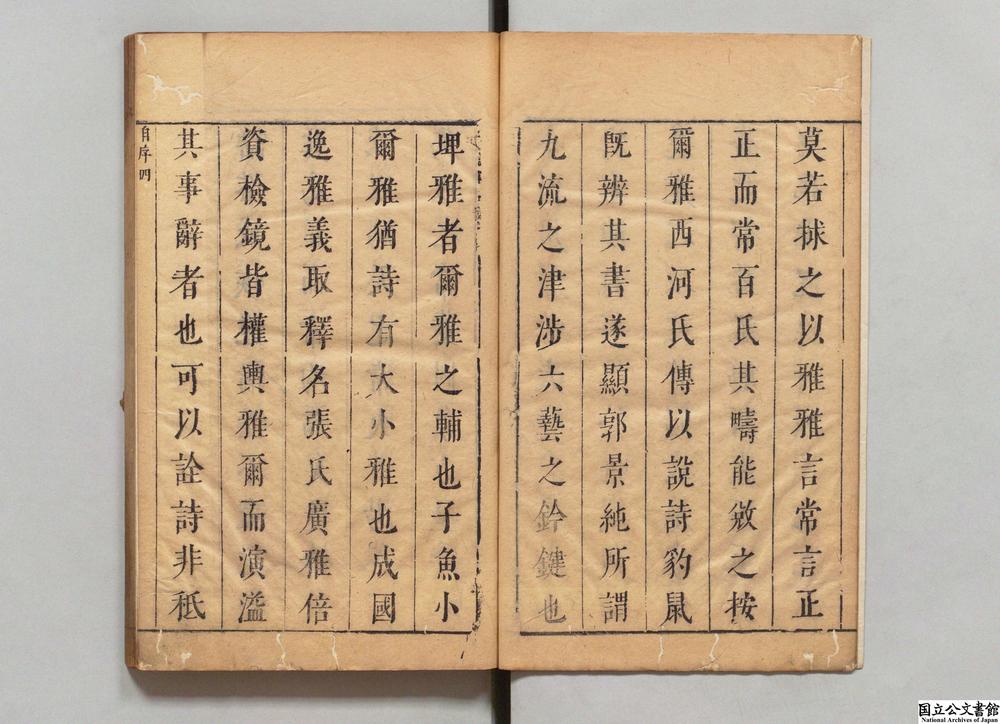 莫若捄之以雅雅言常言正
正而常百氏其疇能㪅之按
爾雅西河氏傳以說詩豹鼠
旣辨其書遂顯郭景純所謂
九流之津涉六藝之鈐鍵也
埤雅者爾雅之輔也子魚小
爾雅猶詩有大小雅也成國
逸雅義取釋名張氏廣雅倍
資檢鏡皆權輿雅爾而演溢
其事辭者也可以詮詩非秪
自序四
国立公文書館
National Archives of Japan